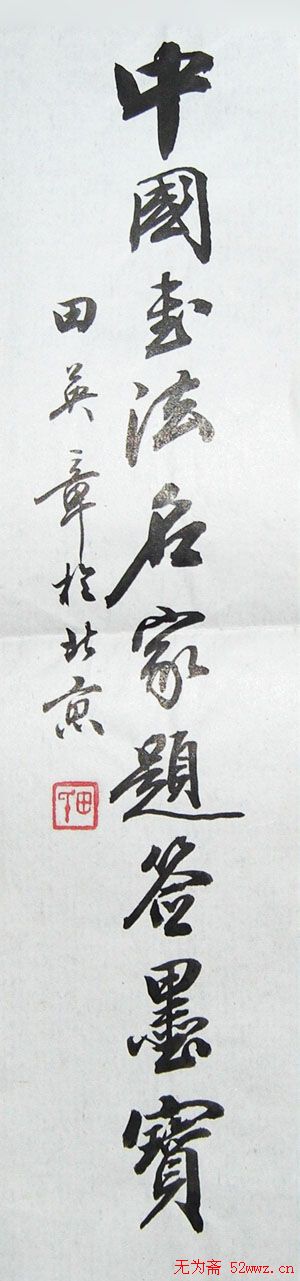 中國书法名家題签墨寶
田英章於北京
无为斋 52wwz.cn